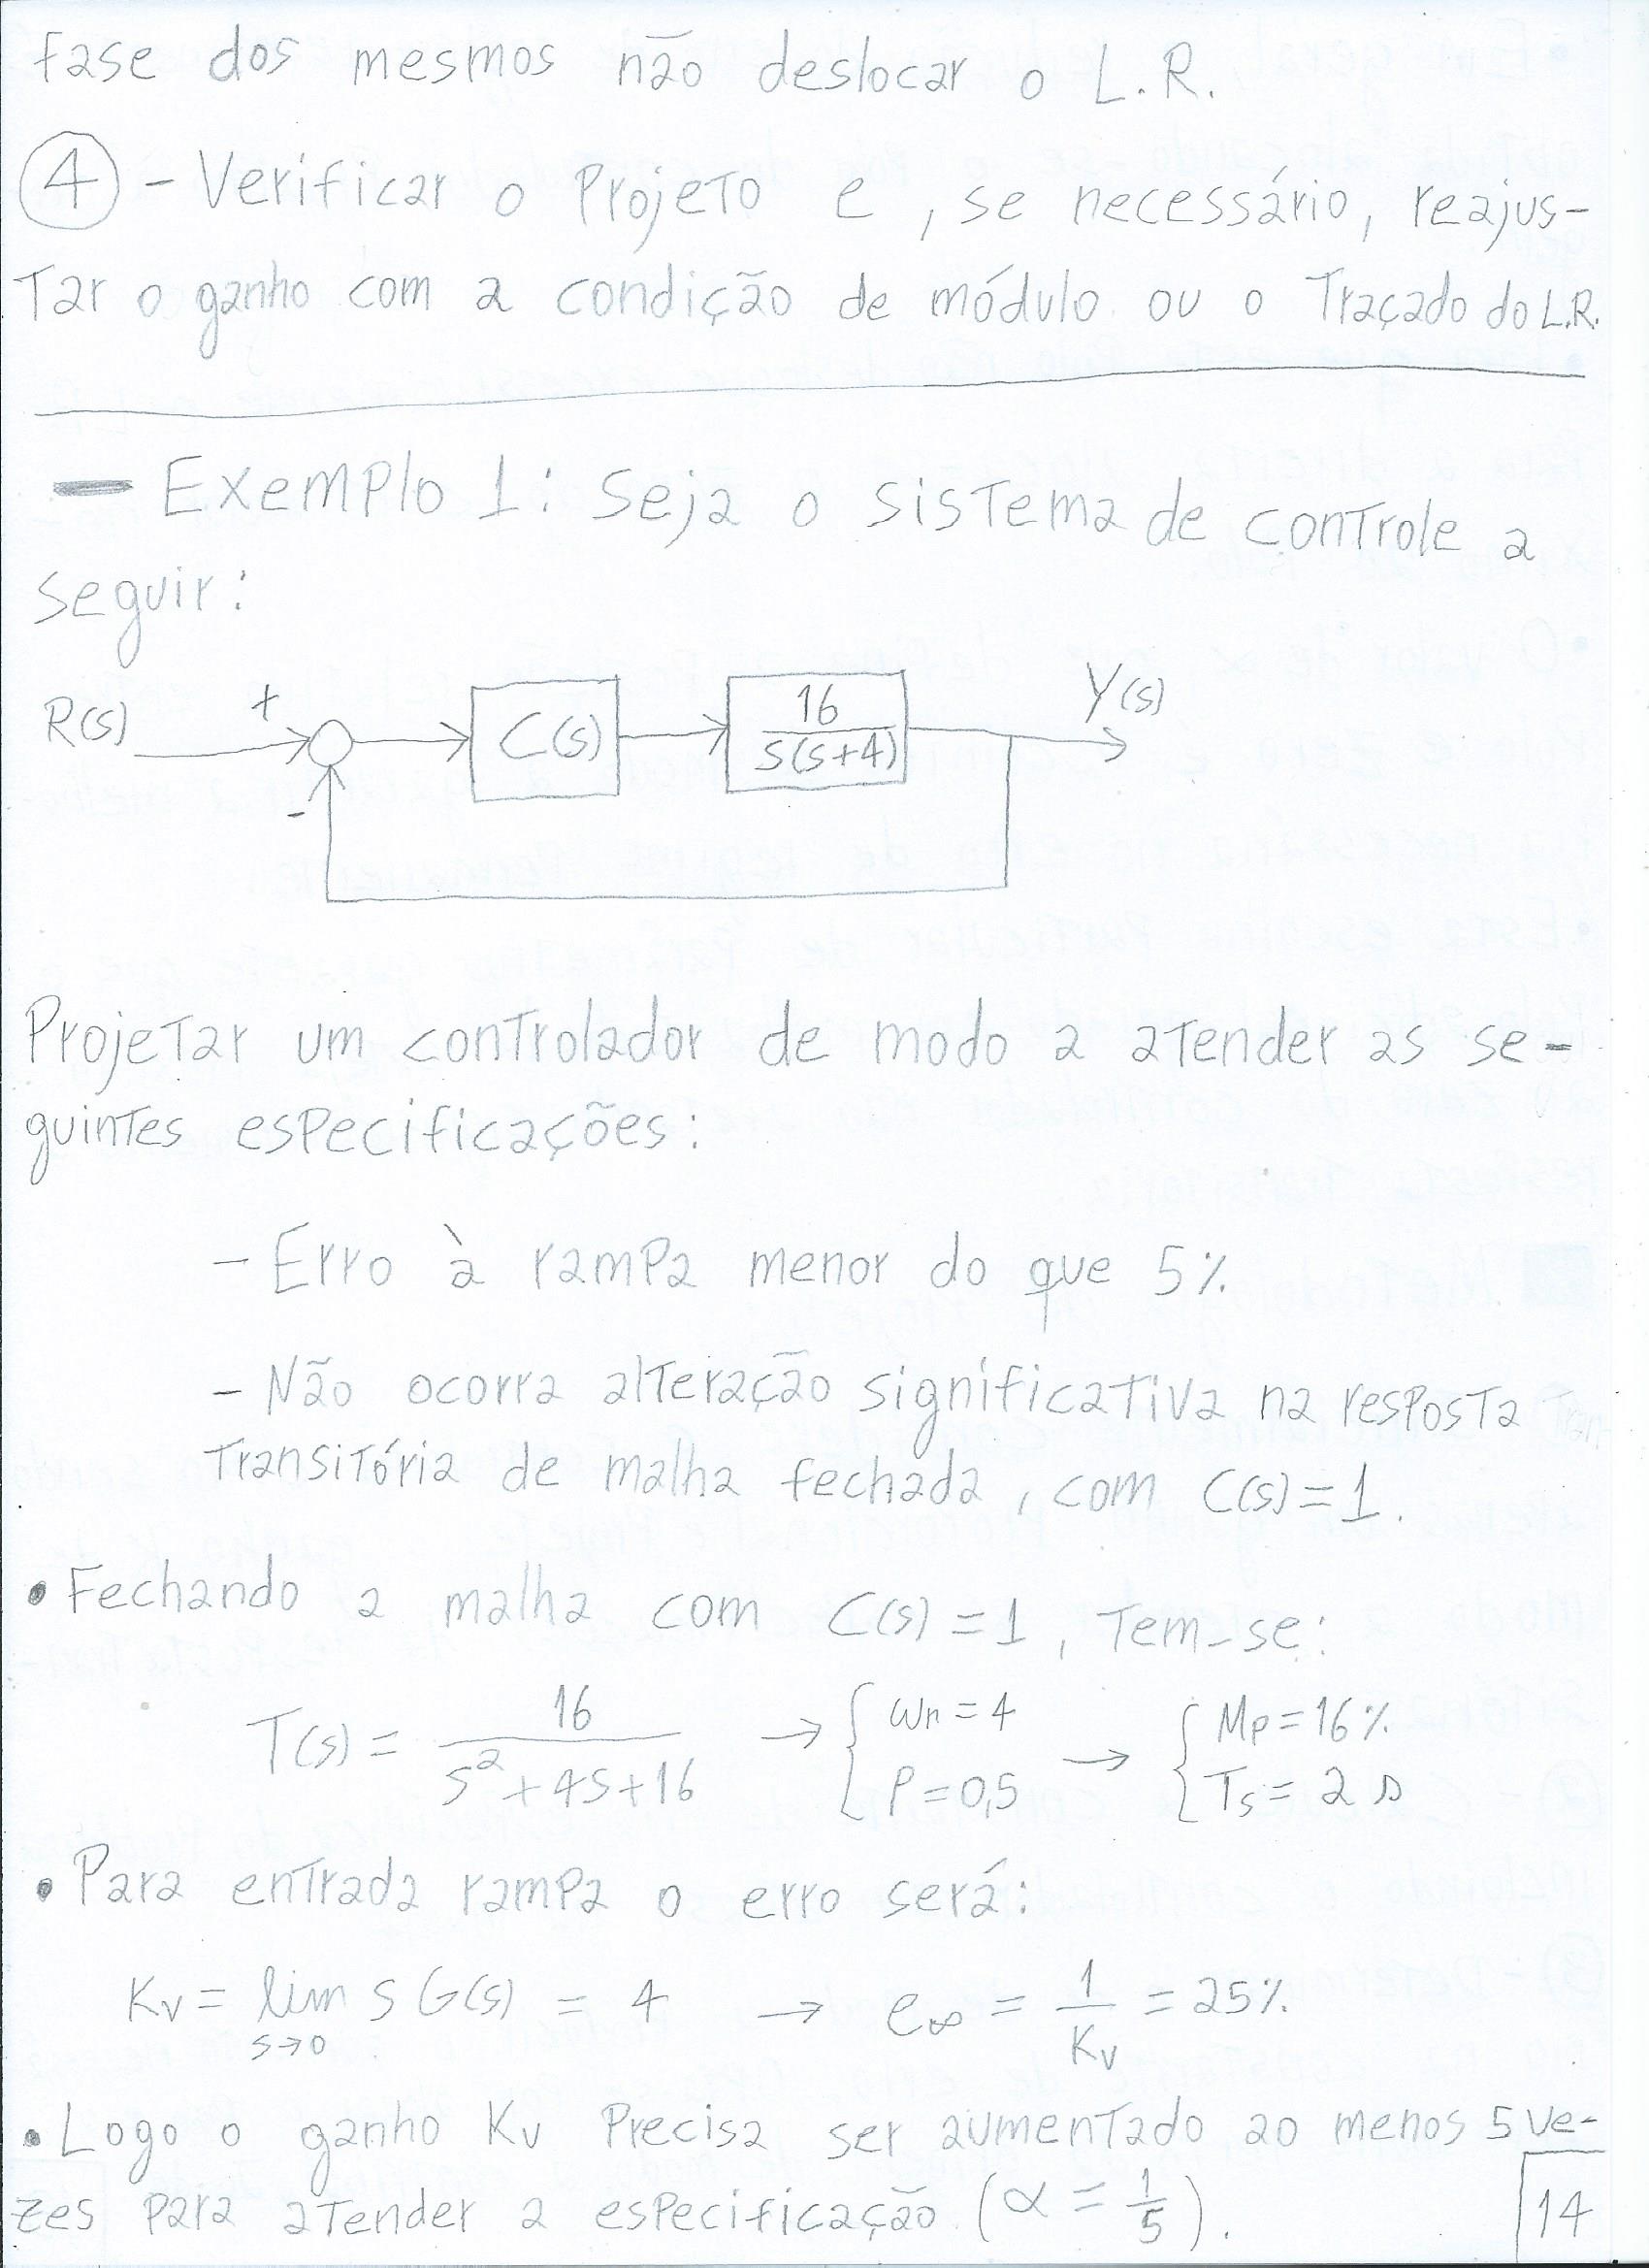 fase dos mesmos não deslocar o L.R.
4 - Verificar o Projeto e, se necessário, reajus-
tar o ganho com a condição de módulo ou o Traçado do L.R.
- Exemplo 1: Seja o sistema de controle a
seguir:
R(s) + - C(s) 16/s(s+4) Y(s)
Projetar um controlador de modo a atender as se-
guintes especificações:
- Erro à rampa menor do que 5%
- Não ocorra alteração significativa na resposta
transitória de malha fechada, com C(s)=1.
• Fechando a malha com C(s)=1, tem-se:
T(s) = 16/(s²+4s+16) → { ωn=4 ρ=0,5 → { Mp=16% Ts=2s
• Para entrada rampa o erro será:
Kv = lim s→0 s G(s) = 4 → e∞ = 1/Kv = 25%
• Logo o ganho Kv precisa ser aumentado ao menos 5 ve-
zes para atender a especificação (α = 1/5).
14